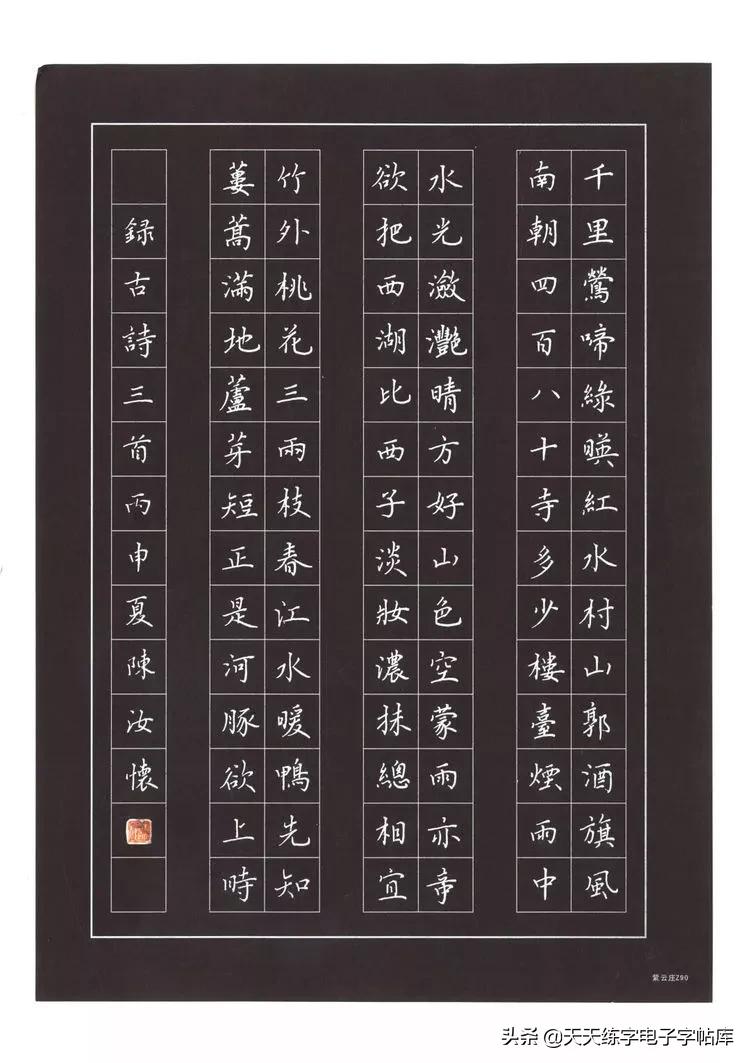 千里鶯啼綠暎紅水村山郭酒旗風
南朝四百八十寺多少樓臺煙雨中
水光瀲灩晴方好山色空蒙雨亦竒
欲把西湖比西子淡妝濃抹總相宜
竹外桃花三兩枝春江水暖鴨先知
蔞蒿滿地蘆芽短正是河豚欲上時
録古詩三首丙申夏陳汝懷
紫云庄Z90
头条 @天天练字电子字帖库